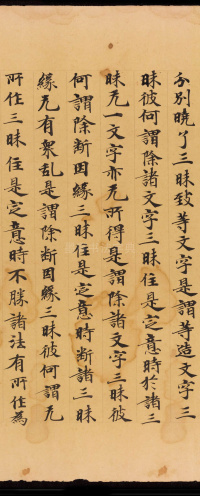 分別曉了三昧致等文字是謂等造文字三
昧彼何謂除諸文字三昧住是定意時於諸三
昧无一文字亦无所得是謂除諸文字三昧彼
何謂除斷因緣三昧住是定意時斷諸三昧
緣无有衆乱是謂除斷因緣三昧彼何謂无
所住三昧住是定意時不勝諸法有所住為